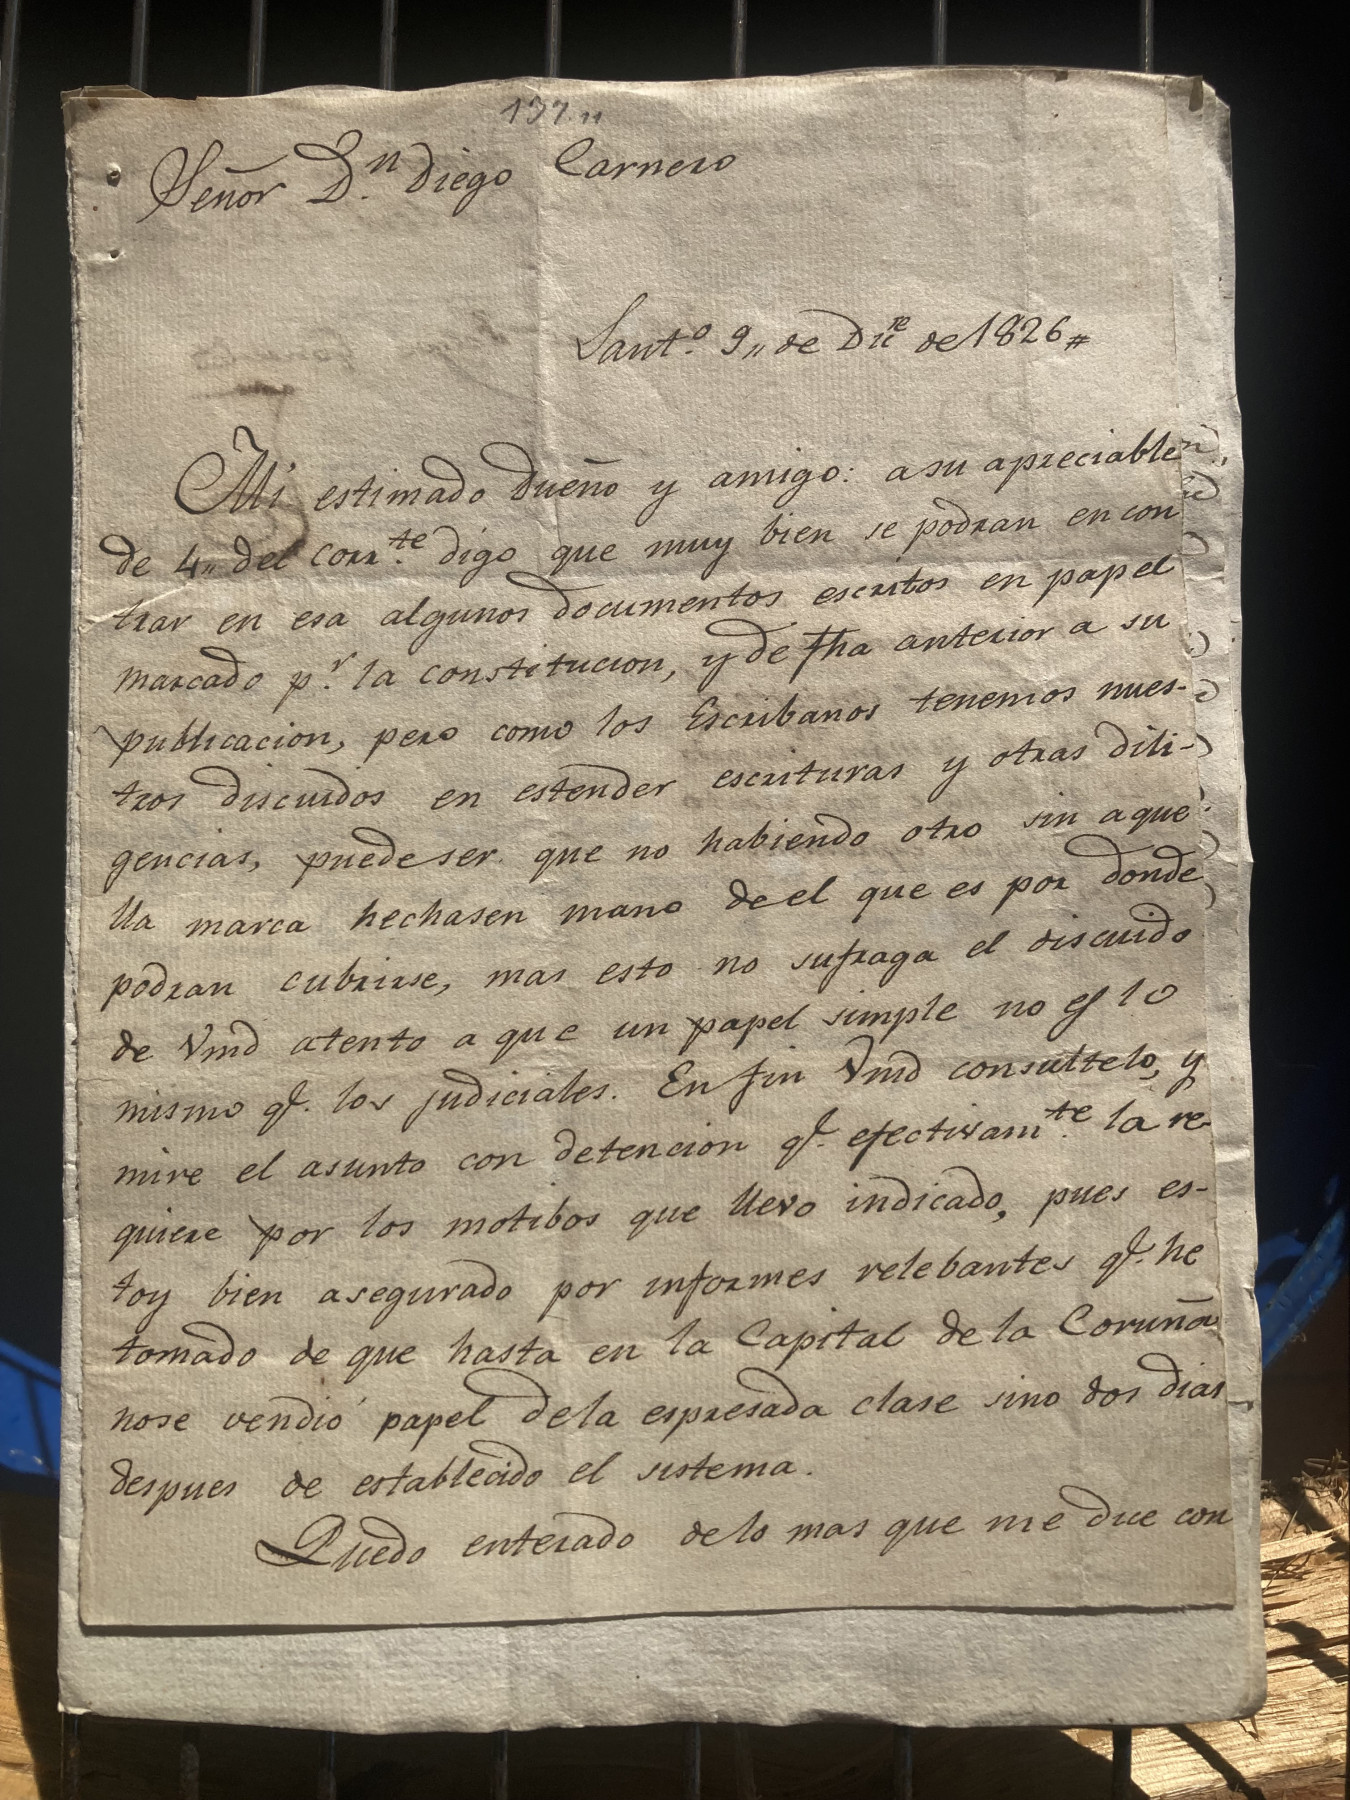 137.,,
Señor D.n Diego Carnero
Sant.o 9,, de Dic.re de 1826 #
Mi estimado Dueño y amigo: a su apreciable
de 4,, del corr.te digo que muy bien se podran encon
trar en esa algunos documentos escritos en papel
marcado p.r la constitucion, y de fha anterior a su
publicacion, pero como los Escribanos tenemos nues-
tros discuidos en estender escrituras y otras dili-
gencias, puede ser que no habiendo otro sin aque
lla marca hechasen mano de el que es por donde
podran cubrirse, mas esto no sufraga el discuido
de Vmd atento a que un papel simple no es lo
mismo q.e los judiciales. En fin Vmd consultelo, y
mire el asunto con detencion q.e efectivam.te la re-
quiere por los motibos que llevo indicado, pues es-
toy bien asegurado por informes relebantes q.e he
tomado de que hasta en la Capital de la Coruña
nose vendió papel dela espresada clase sino dos dias
despues de establecido el sistema.
Quedo enterado delo mas que me dice con